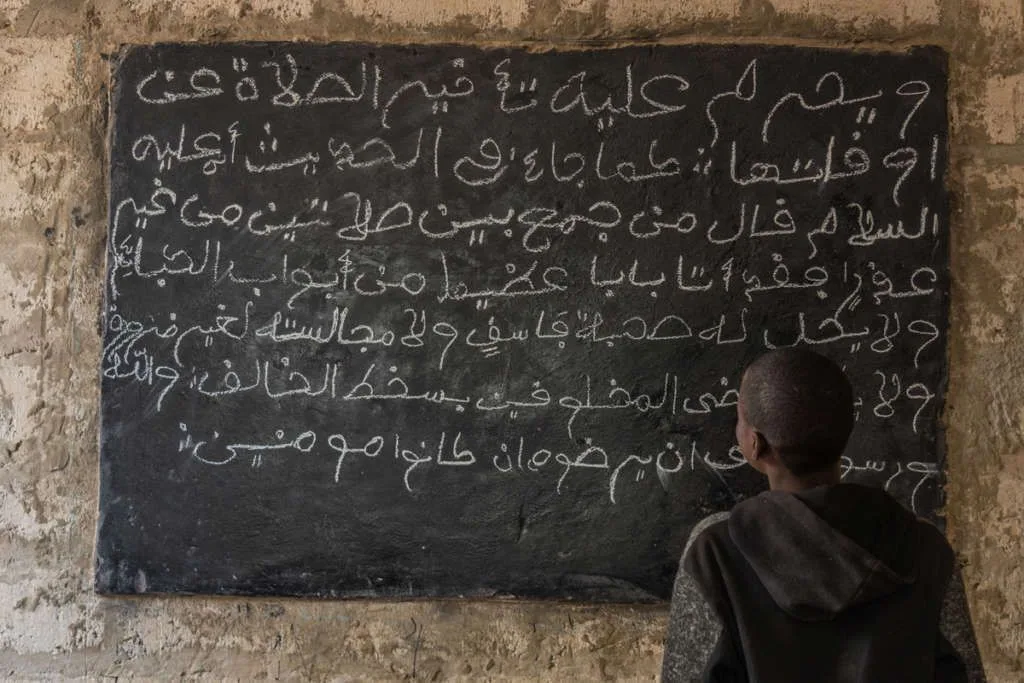 ويحرم عليه تأخير الصلاة عن
اوقاتها لما جاء في الحديث عليه
السلام قال من جمع بين صلاتين من غير
عذرا فقد أتا بابا عضيما من أبواب الكبائر
ولا يحل له صحبة فاسق ولا مجالسته لغير ضرورة
ولا المخلوقين بسخط الخالق والله
ان يرضوه ان كانوا مومنين